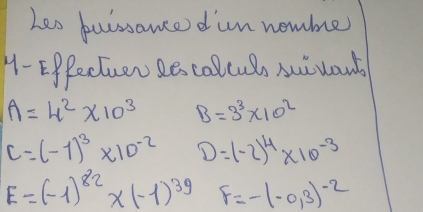 Les puissance d'un nombre
4-Effectuer les calculs suivants
A = 4² × 10³ B = 3³ × 10²
C = (-1)³ × 10⁻² D = (-2)⁴ × 10⁻³
E = (-1)⁸² × (-1)³⁹ F = -(-0,3)⁻²